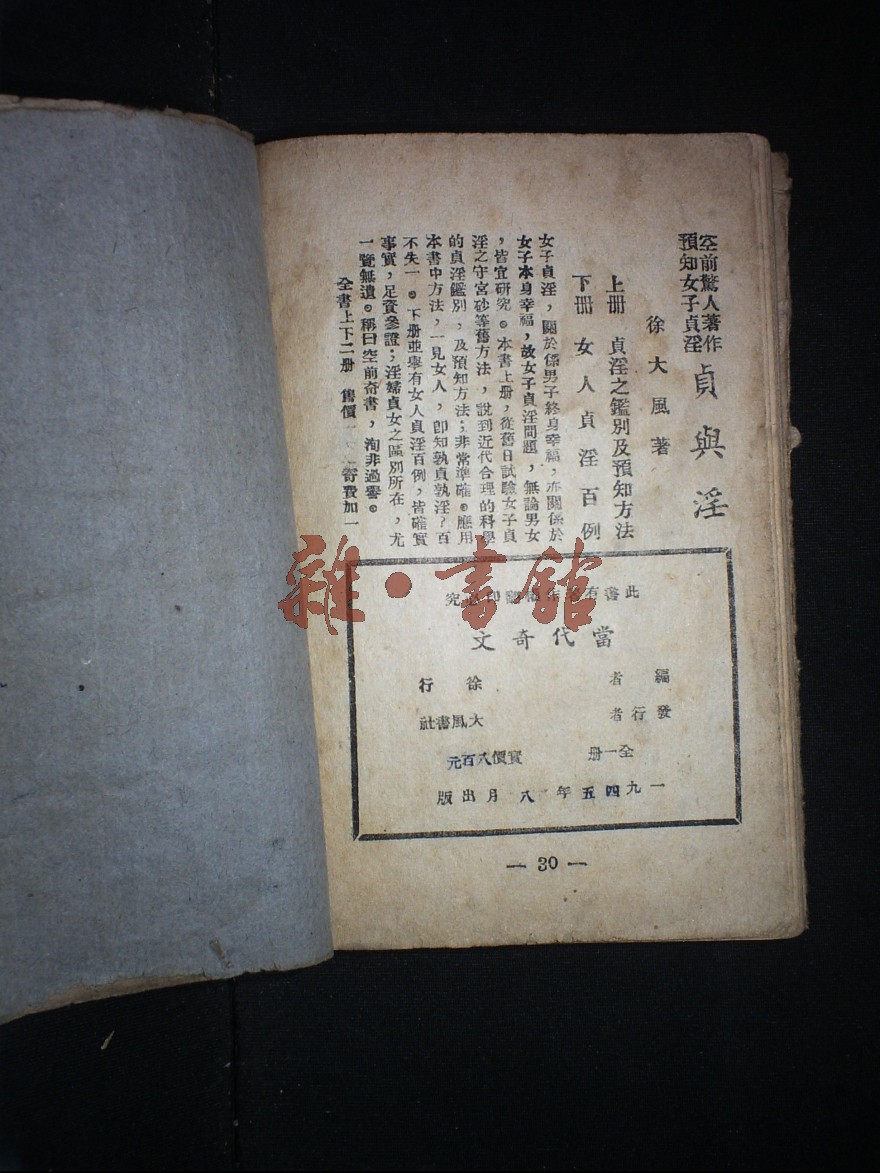 空前驚人著作
預知女子貞淫
貞與淫
徐大風著
上册 貞淫之鑑別及預知方法
下册 女人貞淫百例
女子貞淫，關於係男子終身幸福，亦關係於
女子本身幸福，故女子貞淫問題，無論男女
，皆宜研究。本書上册，從舊日試驗女子貞
淫之守宮砂等舊方法，說到近代合理的科學
的貞淫鑑別，及預知方法；非常準確。應用
本書中方法，一見女人，卽知孰貞孰淫？百
不失一。下册並舉有女人貞淫百例，皆確實
事實，足資參證；淫婦貞女之區別所在，尤
一覽無遺。稱曰空前奇書，洵非過譽。
全書上下二册 售價 寄費加一
此書有 究
當代奇文
編者 徐行
發行者 大風書社
全一册 實價八百元
一九四五年八月出版
— 30 —
雜·書館